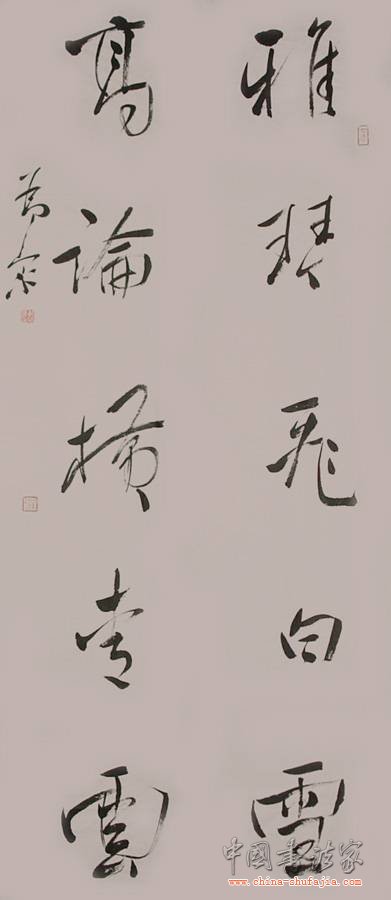 雅琴飛白雪
高論橫青雲
中國書法家
www.china-shufajia.com